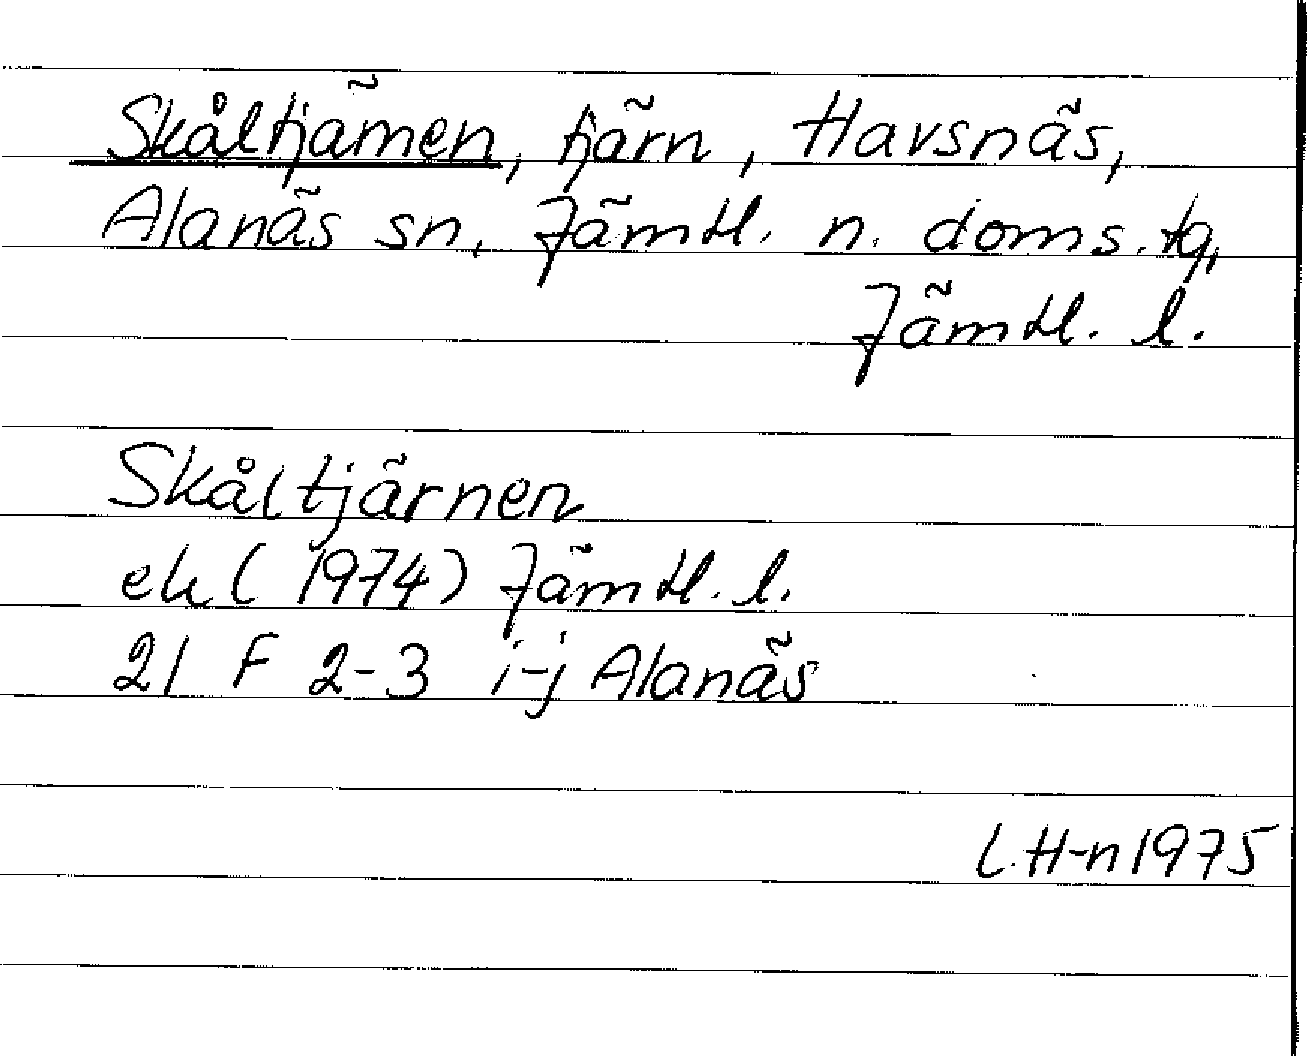 Skåltjärnen, tjärn, Havsnäs,
Alanäs sn, Jämtl. n. doms. tg,
Jämtl. l.
Skåltjärnen
ek (1974) Jämtl. l.
21 F 2-3 i-j Alanäs
L.H-n 1975